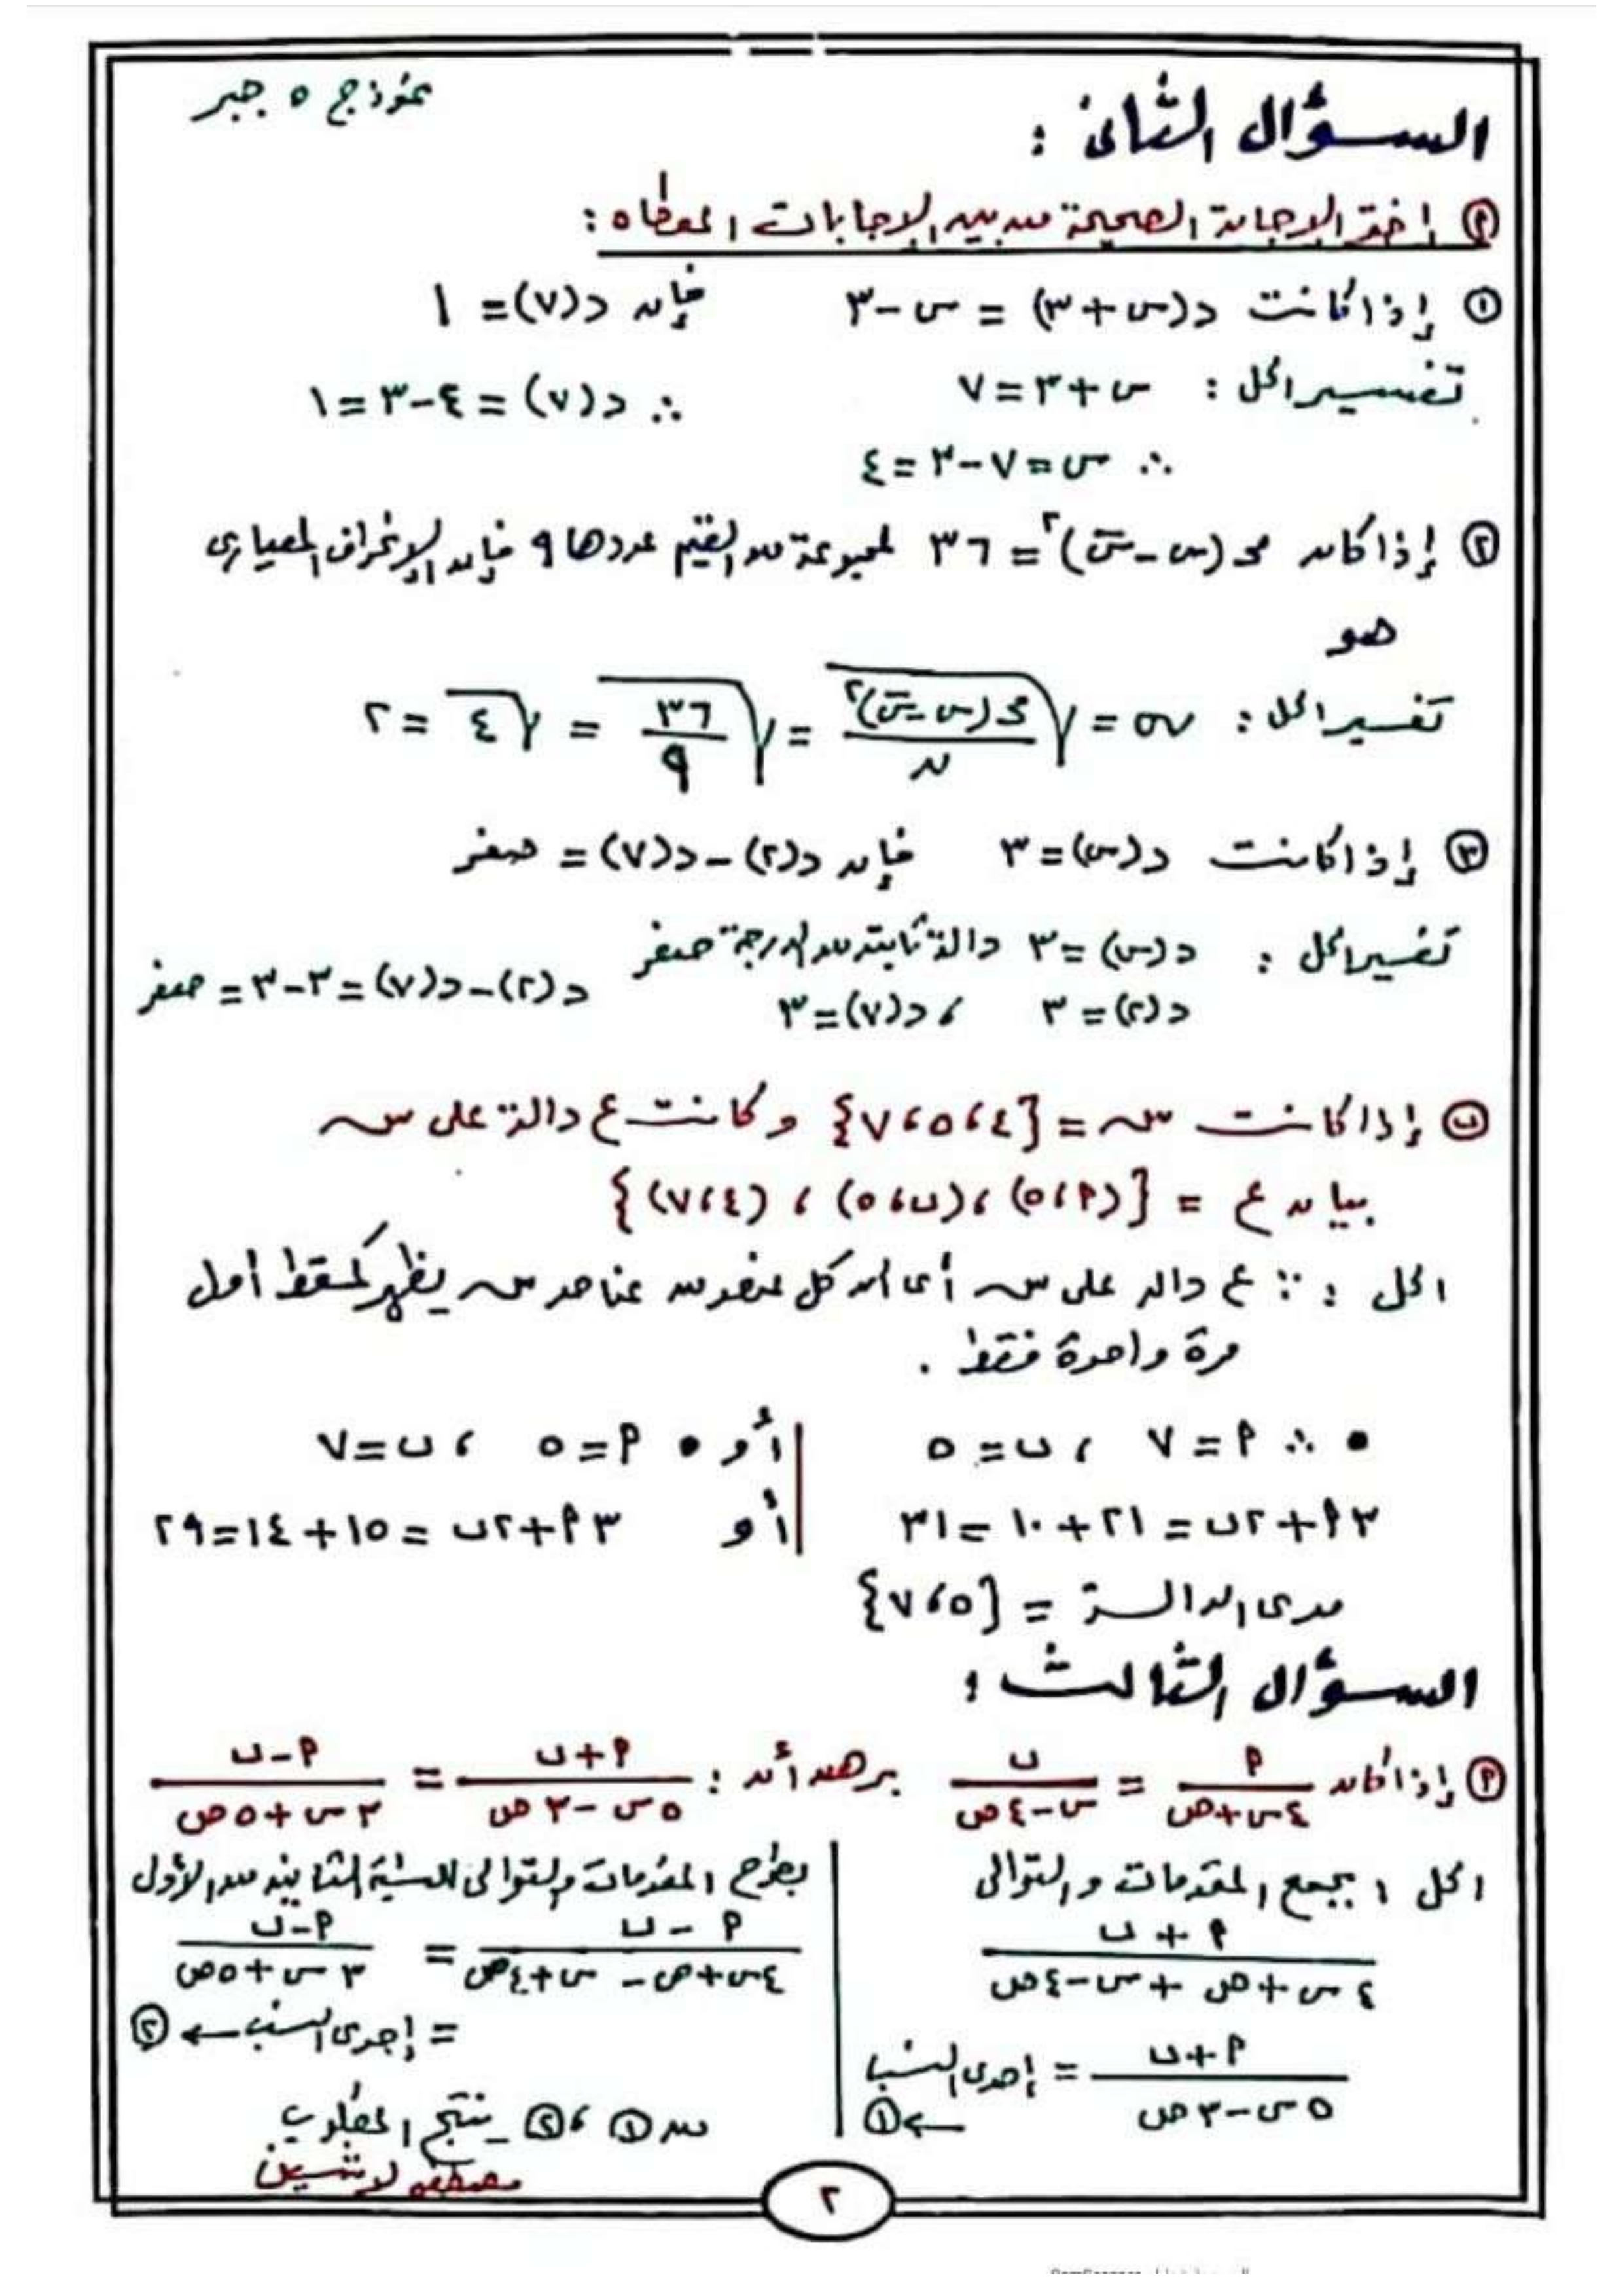 نموذج ٥ جبر
السؤال الثانى :
(أ) إختر الإجابة الصحيحة من بين الإجابات المعطاه :
(١) إذا كانت د(س+٣) = س-٣ فإن د(٧) = ١
تفسير الحل : س+٣=٧ ∴ د(٧) = ٤-٣=١
∴ س=٧-٣=٤
(٢) إذا كان مجـ(س-س̄)٢ = ٣٦ لمجموعة من القيم عددها ٩ فإن الإنحراف المعيارى
هو
تفسير الحل : σ = √(مجـ(س-س̄)٢ / ن) = √(٣٦ / ٩) = √٤ = ٢
(٣) إذا كانت د(س)=٣ فإن د(٢)-د(٧) = صفر
تفسير الحل : د(س)=٣ دالة ثابتة من الدرجة صفر
د(٢)=٣ ، د(٧)=٣ د(٢)-د(٧)=٣-٣=صفر
(ب) إذا كانت س = {٤،٥،٧} وكانت ع دالة على س
بيان ع = {(أ،٥)،(ب،٥)،(٤،٧)}
الحل : ∵ ع دالة على س أى أن كل عنصر من عناصر س يظهر كمسقط أول
مرة واحدة فقط .
• ∴ أ=٧ ، ب=٥ أو • أ=٥ ، ب=٧
٣أ+٢ب=٢١+١٠=٣١ أو ٣أ+٢ب=١٥+١٤=٢٩
مدى الدالة = {٥،٧}
السؤال الثالث :
(أ) إذا كان أ / (٤س+ص) = ب / (س-٤ص) برهن أن : (أ+ب) / (٥س-٣ص) = (أ-ب) / (٣س+٥ص)
الحل : بجمع المقدمات والتوالى
(أ+ب) / (٤س+ص+س-٤ص)
(أ+ب) / (٥س-٣ص) = إحدى النسب
← (١)
بطرح المقدمات والتوالى للنسبة الثانية من الأول
(أ-ب) / (٤س+ص-س+٤ص) = (أ-ب) / (٣س+٥ص)
= إحدى النسب ← (٢)
من (١) ، (٢) ينتج المطلوب
مصطفى لاشين
٢